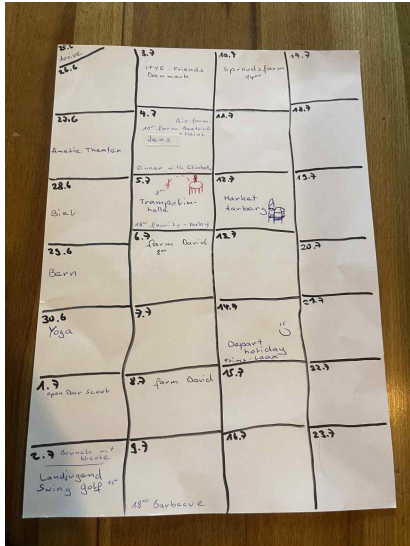 25.6
Arrive
26.6
27.6
Amelie Theater
28.6
Biel
29.6
Bern
30.6
Yoga
1.7
open Door Scout
2.7 Brunch mit
Nicole
Landjugend
Swing golf
3.7
IFYE-Friends
Danmark
4.7
Bio farm
Jens
Dinner with
5.7
Trampolin-
halle
18°° family-baby
6.7 farm David
7.7
8.7 farm David
9.7
18°° barbacue
10.7
Sproudsfarm
14°°
11.7
12.7
Market
13.7
14.7
Depart
holiday
15.7
16.7
17.7
18.7
19.7
20.7
21.7
22.7
23.7